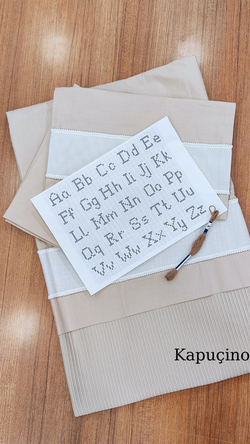 Aa Bb Cc Dd Ee
Ff Gg Hh Ii Jj Kk
Ll Mm Nn Oo Pp
Qq Rr Ss Tt Uu
Vv Ww Xx Yy Zz
Kapuçino